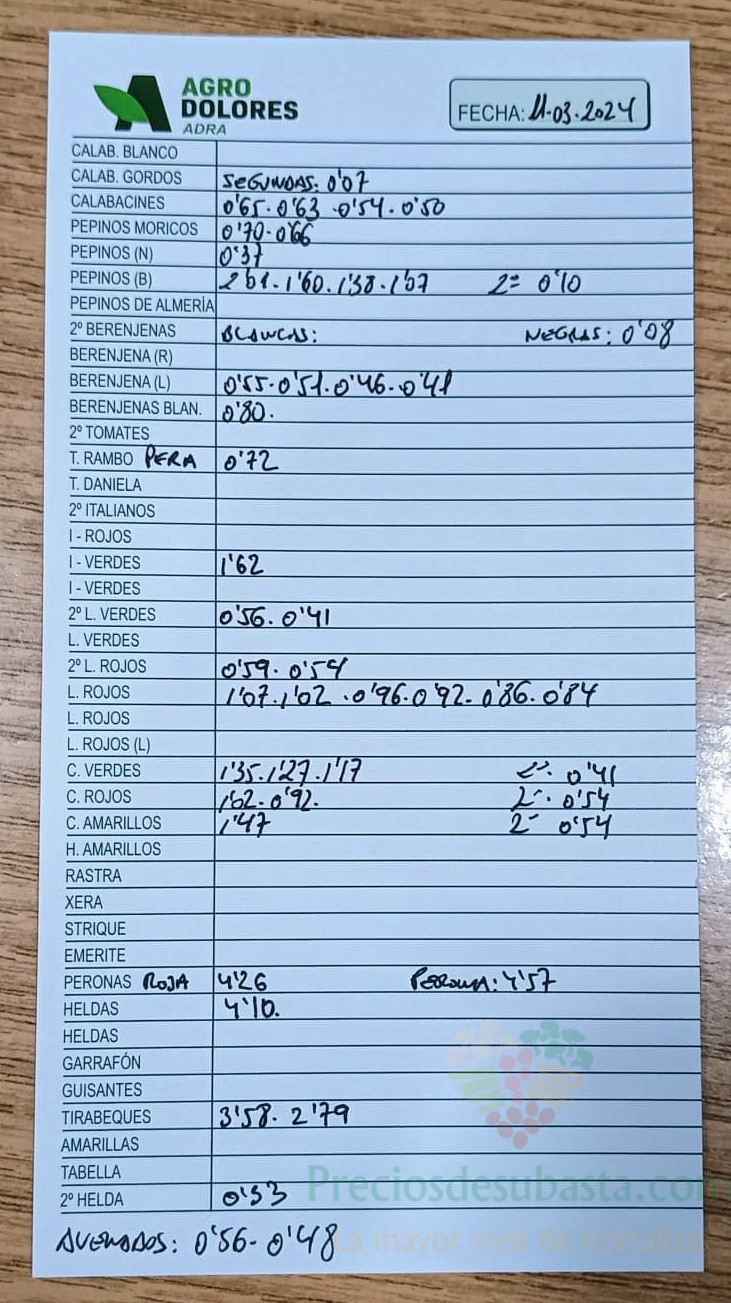 AGRO
DOLORES
ADRA
FECHA: 11-03-2024
CALAB. BLANCO
CALAB. GORDOS SEGUNDAS: 0'07
CALABACINES 0'65 · 0'63 · 0'54 · 0'50
PEPINOS MORICOS 0'70 · 0'66
PEPINOS (N) 0'37
PEPINOS (B) 1'60 · 1'38 · 1'07 2ª 0'10
PEPINOS DE ALMERÍA
2º BERENJENAS BLANCAS: NEGRAS: 0'08
BERENJENA (R)
BERENJENA (L) 0'55 · 0'51 · 0'46 · 0'41
BERENJENAS BLAN. 0'80.
2º TOMATES
T. RAMBO PERA 0'72
T. DANIELA
2º ITALIANOS
I - ROJOS
I - VERDES 1'62
I - VERDES
2º L. VERDES 0'56. 0'41
L. VERDES
2º L. ROJOS 0'59. 0'54
L. ROJOS 1'07. 1'02 · 0'96 · 0'92 · 0'86. 0'84
L. ROJOS
L. ROJOS (L)
C. VERDES 1'35. 1'27. 1'17 2ª. 0'41
C. ROJOS 1'62 · 0'92. 2ª. 0'54
C. AMARILLOS 1'47 2ª 0'54
H. AMARILLOS
RASTRA
XERA
STRIQUE
EMERITE
PERONAS ROJA 4'26 PERONA: 4'57
HELDAS 4'10.
HELDAS
GARRAFÓN
GUISANTES
TIRABEQUES 3'58. 2'79
AMARILLAS
TABELLA
2º HELDA 0'33
Preciosdesubasta.com
AVENADOS: 0'56 - 0'48
La mayor web de hortaliza